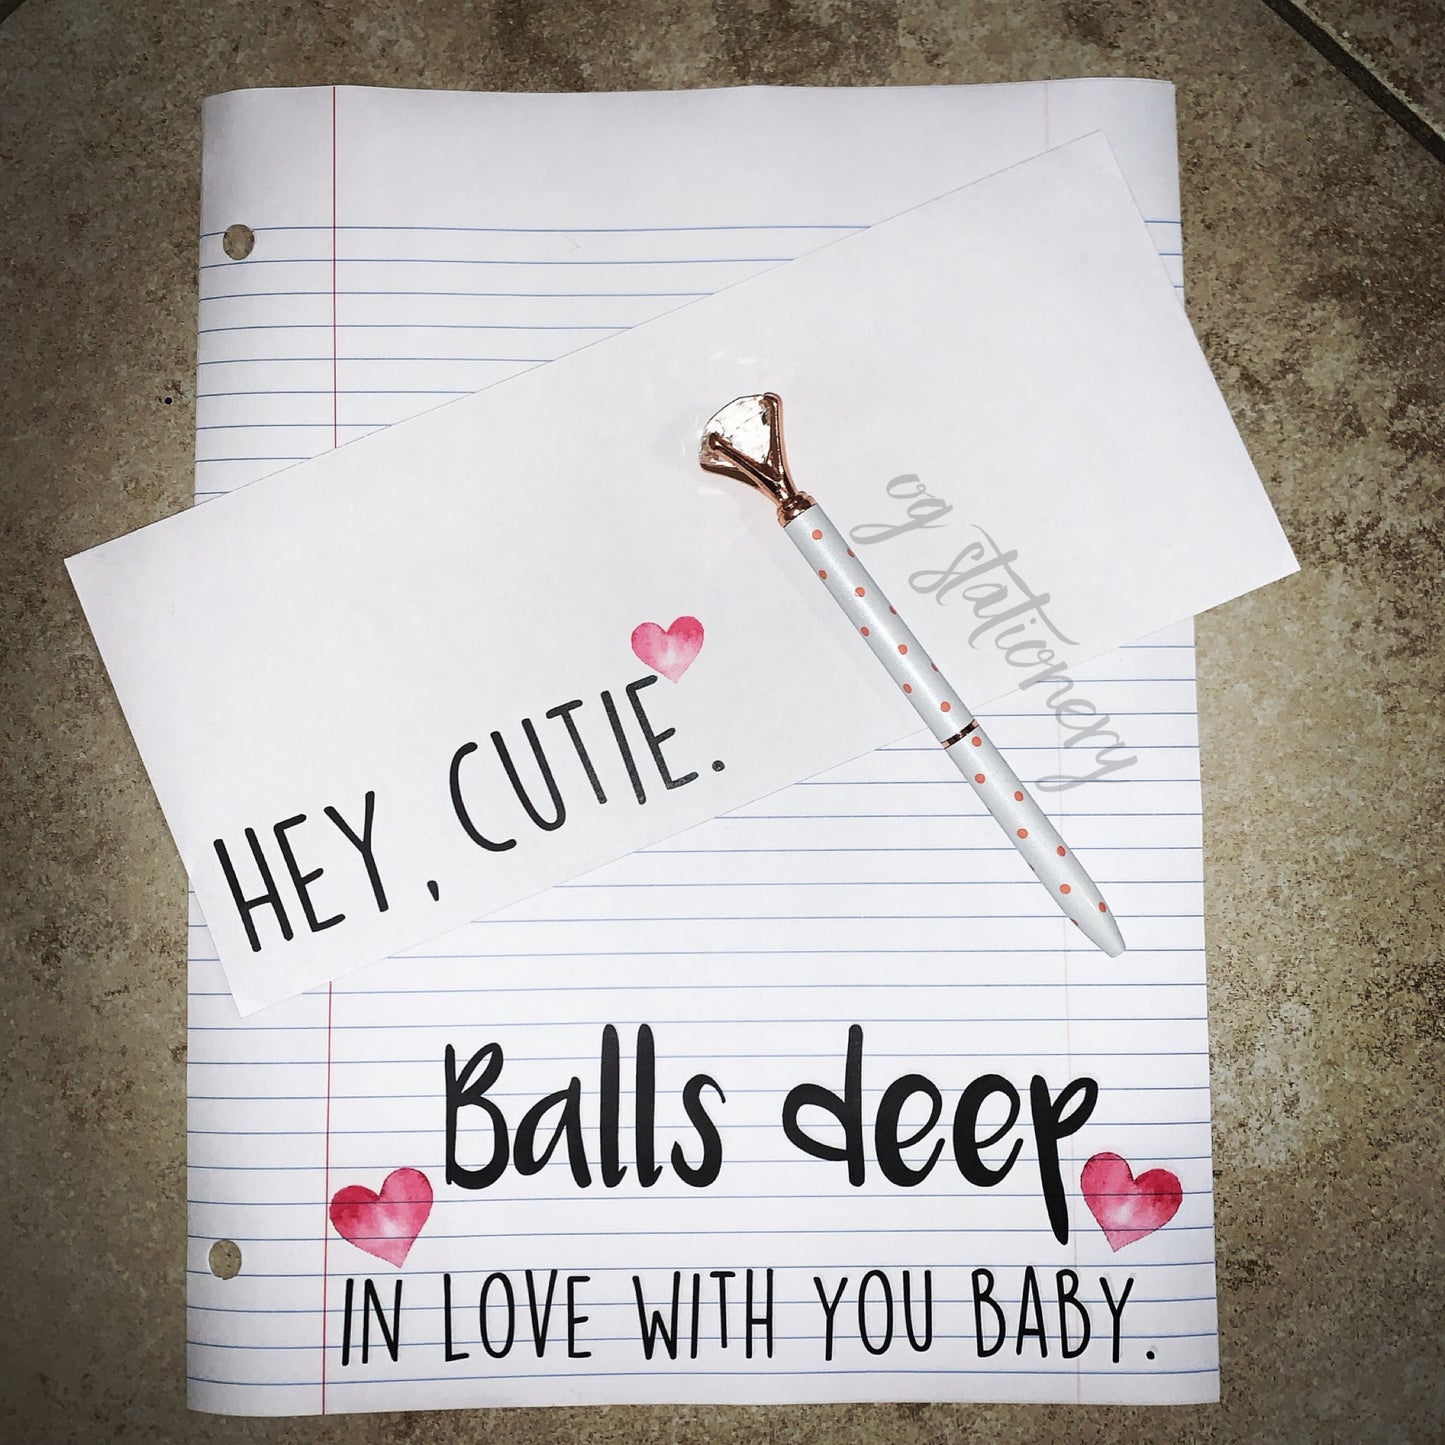 og stationery
HEY, CUTIE.
Balls deep
IN LOVE WITH YOU BABY.